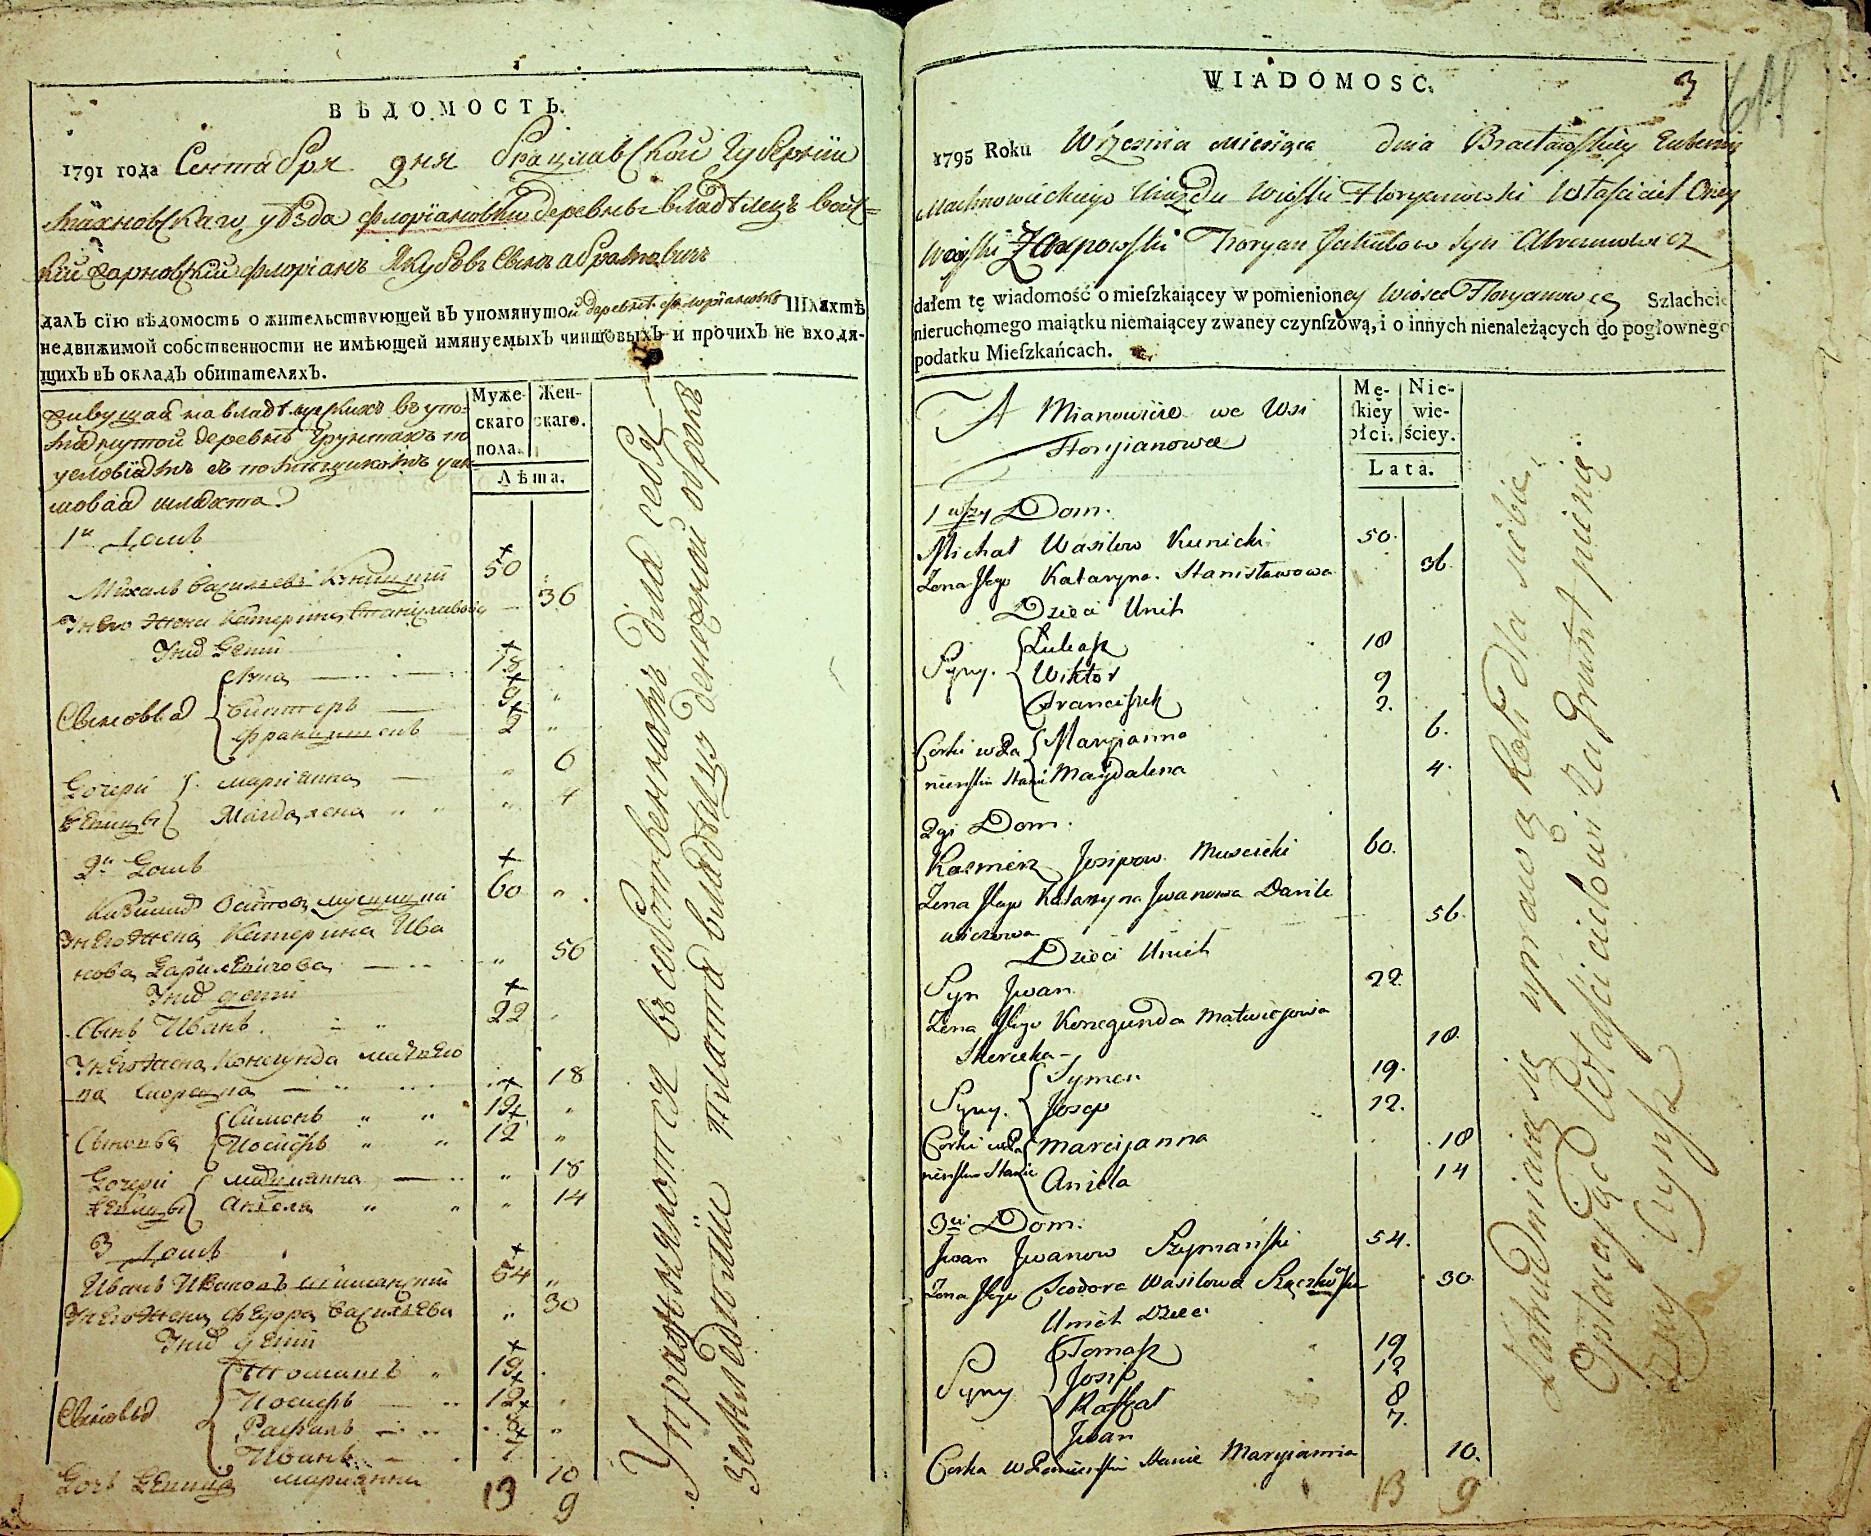 ВѢДОМОСТЬ.
1791 года Сентября дня Брацлавской Губернiи
Махновскаго уѣзда Флорiановки деревнѣ владѣлецъ вой=
скiй Флорiанъ Якубовъ Сынъ Абрамовичъ
далъ сїю вѣдомость о жительствующей въ упомянутой деревнѣ Флорiановкѣ Шляхтѣ
недвижимой собственности не имѣющей имянуемыхъ чиншовыхъ и прочихъ не входя-
щихъ въ окладъ обитателяхъ.
Муже-
скаго
пола.
Жен-
скаго.
Лѣта.
живущая на владѣлческихъ въ упо=
мянутой деревнѣ грунтахъ по
условiямъ съ помѣщикомъ чин
шовая шляхта
1й Домъ
Михаль Васильевъ Куницкiй 50
Унего жена Катерина Станиславова 36
Унид дети
Сыновья 18
Викторъ 9
Францишекъ 2
Дочери Марiянна 6
Девицы Магдалена 4
2й Домъ
Казимиръ Осиповъ Мусицкiй 60
Унего жена Катерина Ива
нова Данилевичова 56
Унид дети
Сынъ Иванъ 22
Унего жена Конегунда Матвее
ва 18
Сыновья Симонъ 19
Иосифъ 12
Дочери Марианна 18
Девицы Анеля 14
3 Домъ
Иванъ Ивановъ Шиманскiй 54
Унего жена Феодора Василева 30
Унид дети
Сыновья Томашъ 19
Иосифъ 12
Рафалъ 8
Иванъ 7
Дочь девица Марианна 10
13 9
Упражняются въ собственномъ для себя
земледѣлии платя владѣлцу денежный оброкъ
WIADOMOSC.
3
1795 Roku Września Miesiąca dnia Bracławskiey Gubernij
Machnowieckiego Uiazdu Wioski Floryanowski Własciciel Oney
Woyski Floryan Jakubow Syn Abramowicz
dałem tę wiadomość o mieſzkaiącey w pomienioney Wiosce Floryanowce Szlachcie
nieruchomego maiątku niemaiącey zwaney czynſzową, i o innych nienależących do pogłownego
podatku Mieſzkańcach.
Mę-
ſkiey
płci.
Nie-
wie-
ściey.
Lata.
A Mianowicie we Wsi
Floryianowce
1wszy Dom.
Michał Wasilow Kunicki 50.
Zona Jego Kataryna Stanisławowa 36.
Dzieci Unich
Syny. Łukasz 18
Wiktor 9
Franciszek 2.
Corki w Pa Maryianna 6.
nieńskim Stanie Magdalena 4.
2gi Dom.
Kazmierz Josipow Muscicki 60.
Zona Jego Katarzyna Jwanowa Danile
wiczowa 56.
Dzieci Unich
Syn Jwan 22.
Zona Jego Konegunda Matwiejowa
18.
Syny. Symon 19.
Josep 12.
Corki w Pa Marcijanna 18
nieńskim Stanie Aniela 14
3ci Dom.
Jwan Jwanow Szymański 54.
Zona Jego Teodora Wasilowa 30.
Unich Dzieci
Syny Tomasz 19
Josip 12
Rafał 8
Jwan 7.
Corka w Panieńskim Stanie Maryianna 10.
13 9
Zatrudniaią się uprawą Roli dla siebie,
Opłacaiąc Włascicielowi za Grunt pieniężny
Czynsz